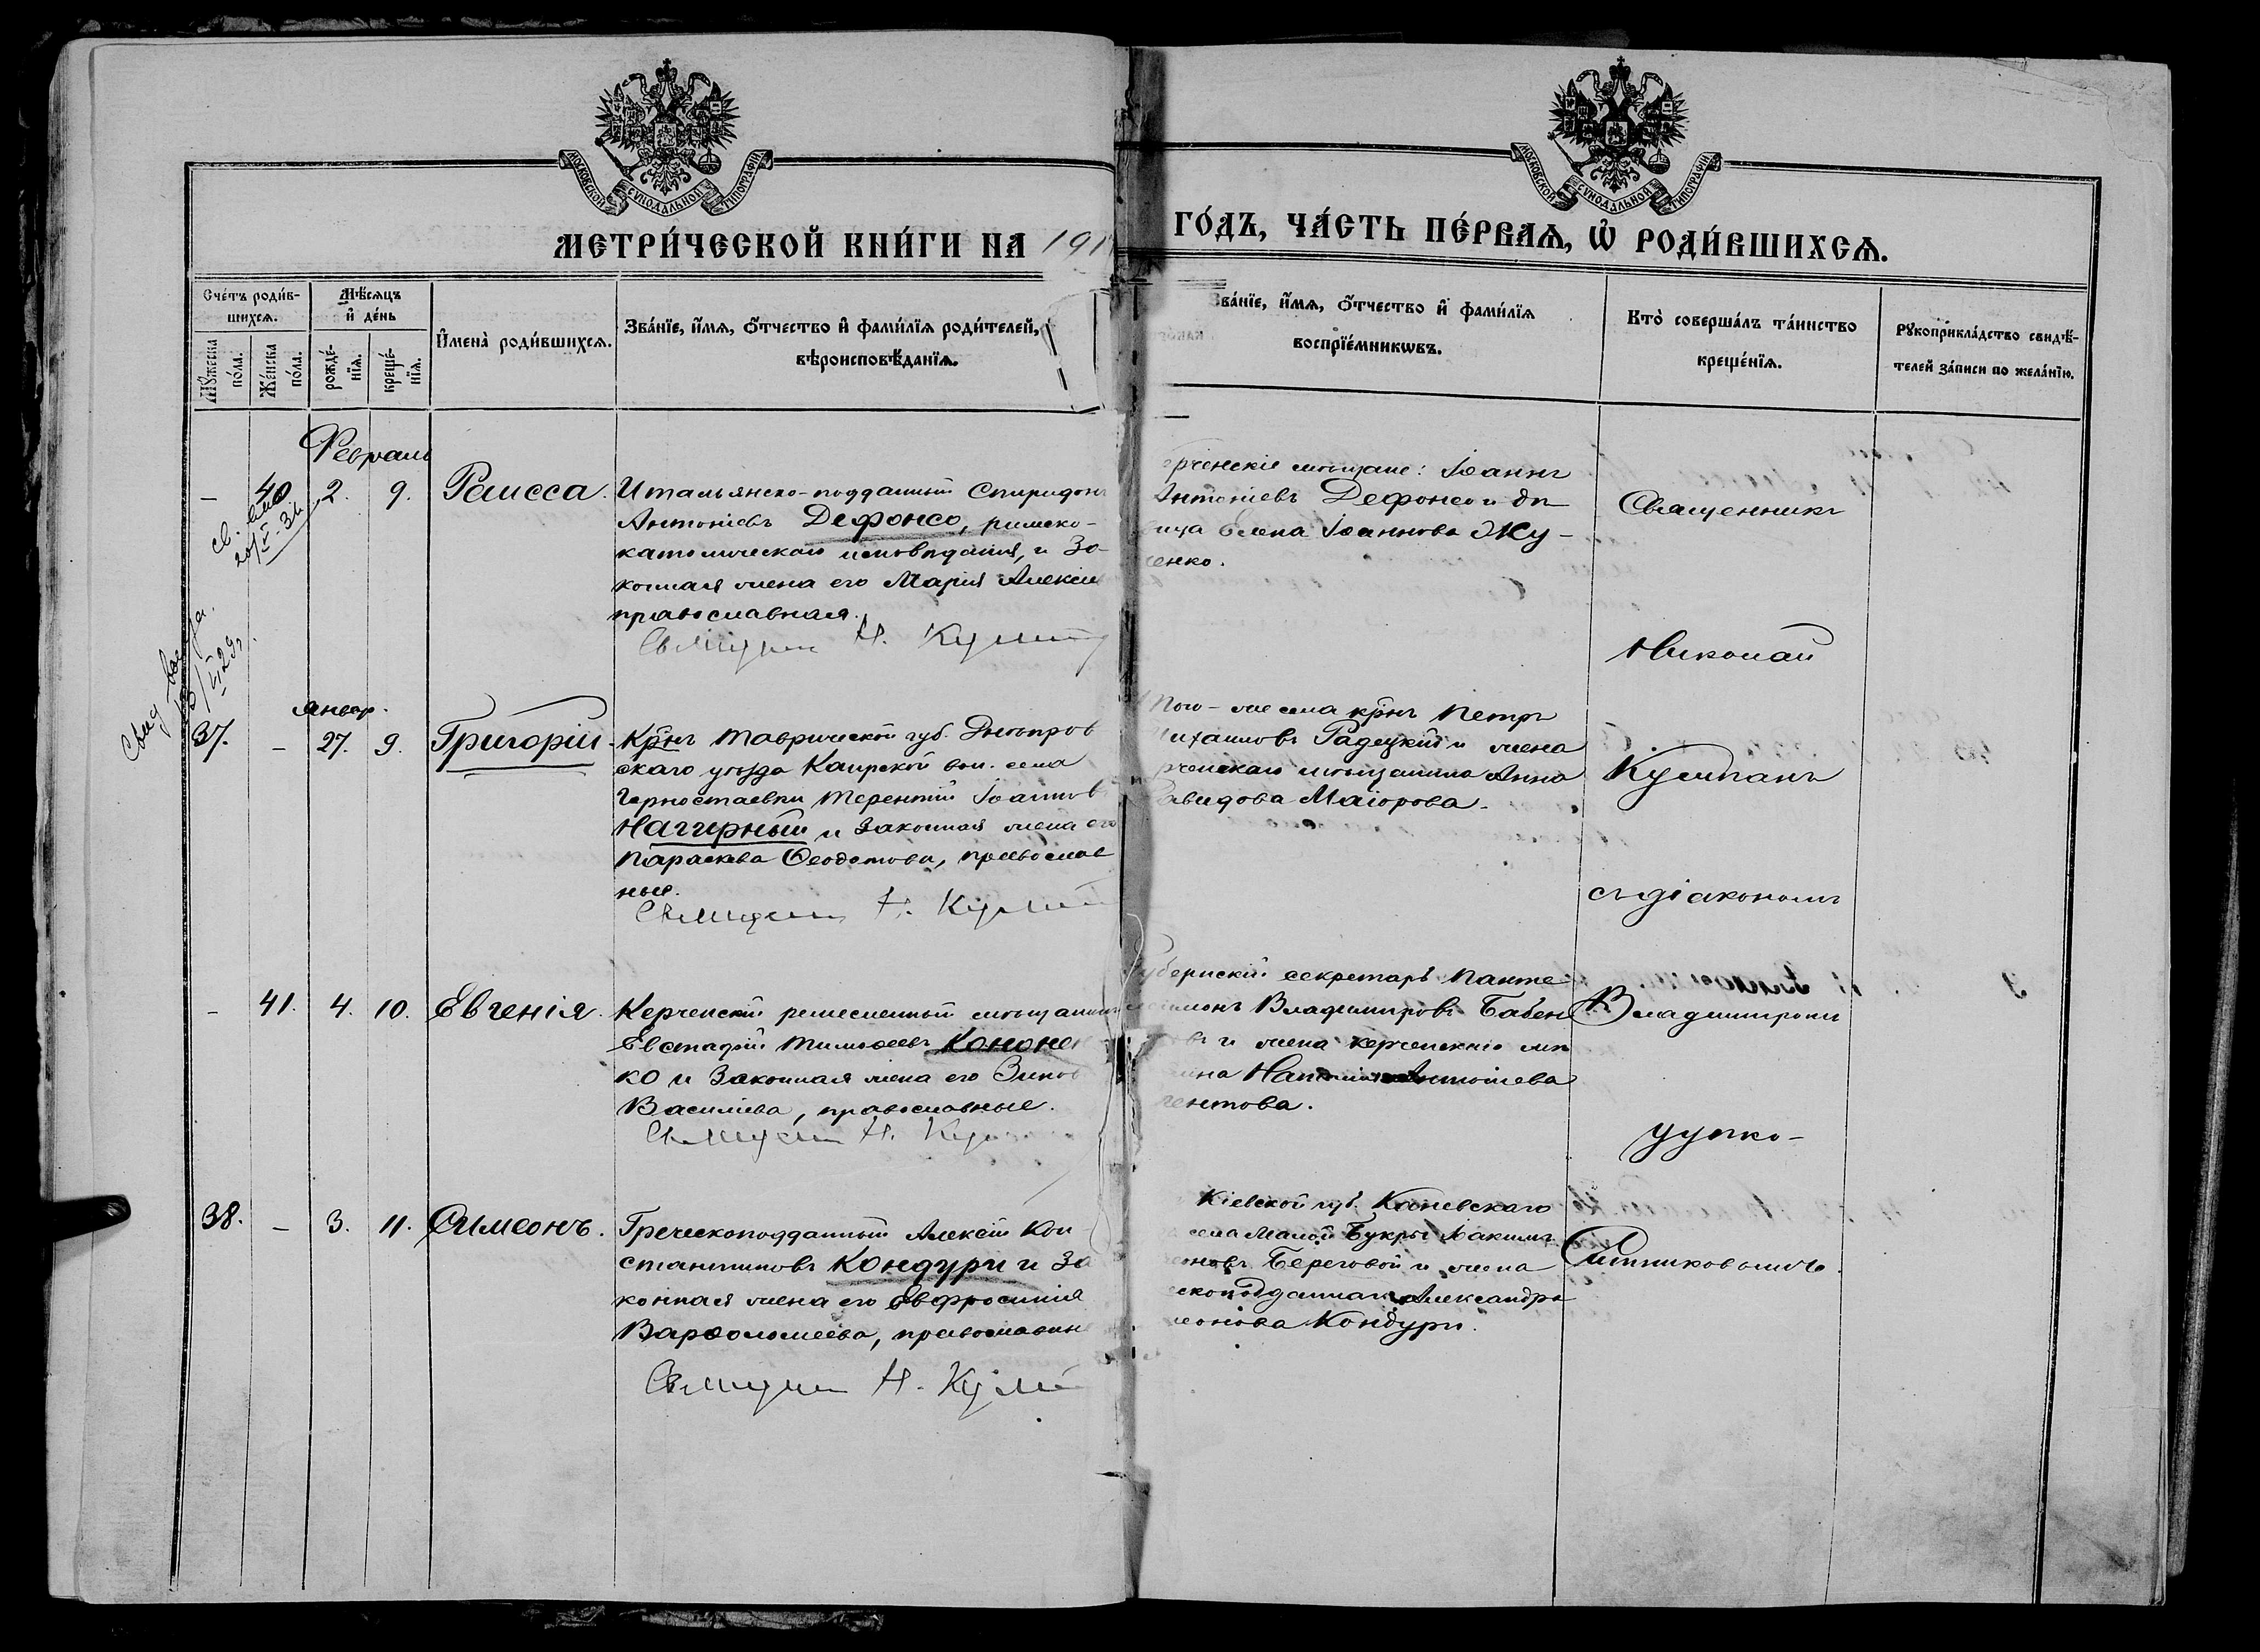 МОСКОВСКОЙ СУНОДАЛЬНОЙ ТИПОГРАФІИ
МОСКОВСКОЙ СУНОДАЛЬНОЙ ТИПОГРАФІИ
МЕТРИ́ЧЕСКОЙ КНИ́ГИ НА 191
ГО́ДЪ, ЧА́СТЬ ПЕ́РВАѦ, Ѡ҆ РОДИ́ВШИХСѦ.
Сче́тъ роди́в-
шихсѧ.
Мѣ́сѧцъ
и҆ де́нь
Мꙋ́жеска
по́ла.
Же́нска
по́ла.
рожде́-
нїѧ.
креще́-
нїѧ.
И҆мена̀ роди́вшихсѧ.
Зва́нїе, и҆́мѧ, ѻ҆́тчество и҆ фами́лїѧ роди́телей,
вѣроисповѣ́данїѧ.
Зва́нїе, и҆́мѧ, ѻ҆́тчество и҆ фами́лїѧ
воспрїе́мникѡвъ.
Кто̀ соверша́лъ та́инство
креще́нїѧ.
Рꙋкоприкла́дство свидѣ́-
телей за́писи по жела́нїю.
Февраль
– 40 2. 9. Раисса.
Итальянско-подданный Спиридонъ
Антоніевъ Дефонсо, римско-
католическаго исповѣданія, и за-
конная жена его Марія Алексѣе
православная.
Священник Н. Кумпан
рченскіе мѣщане: Іоаннъ
Антоніевъ Дефонсо и дѣ
вица Елена Іоаннова Жу-
ченко.
Священникъ
20/V-31.
Николай
Январ.
37. – 27. 9. Григорій.
Крнъ Таврической губ. Днѣпров
скаго уѣзда Каирской вол. села
Черностаевки Терентій Іоаннов
Нагирный и законная жена его
Параскева Ѳеодотова, православ
ные.
Священник Н. Кумпан
Того-же села крнъ Петръ
Михаиловъ Радецкій и жена
рченскаго мѣщанина Анна
Давидова Маіорова.
Кумпанъ
съ діакономъ
– 41. 4. 10. Евгенія.
Керченскій ремесленный мѣщанинъ
Евстафій Тимоѳеевъ Кононен
ко и законная жена его Зинов
Василіева, православные.
Священник Н. Кум
Губернскій секретарь Панте
леимонъ Владиміровъ Бабен
въ и жена керченскаго мѣ
нина Антоніева
гентова.
Владиміромъ
38. – 3. 11. Симеонъ.
Греческоподданный Алексій Кон-
стантиновъ Кондури и за
конная жена его Евфросинія
Варѳоломеева, православн
Священник Н. Кумп
Кіевской губ. Каневскаго
села Малой Букры Іакимъ
оновъ Береговой и жена
скоподданнаго Александра
меонова Кондури.